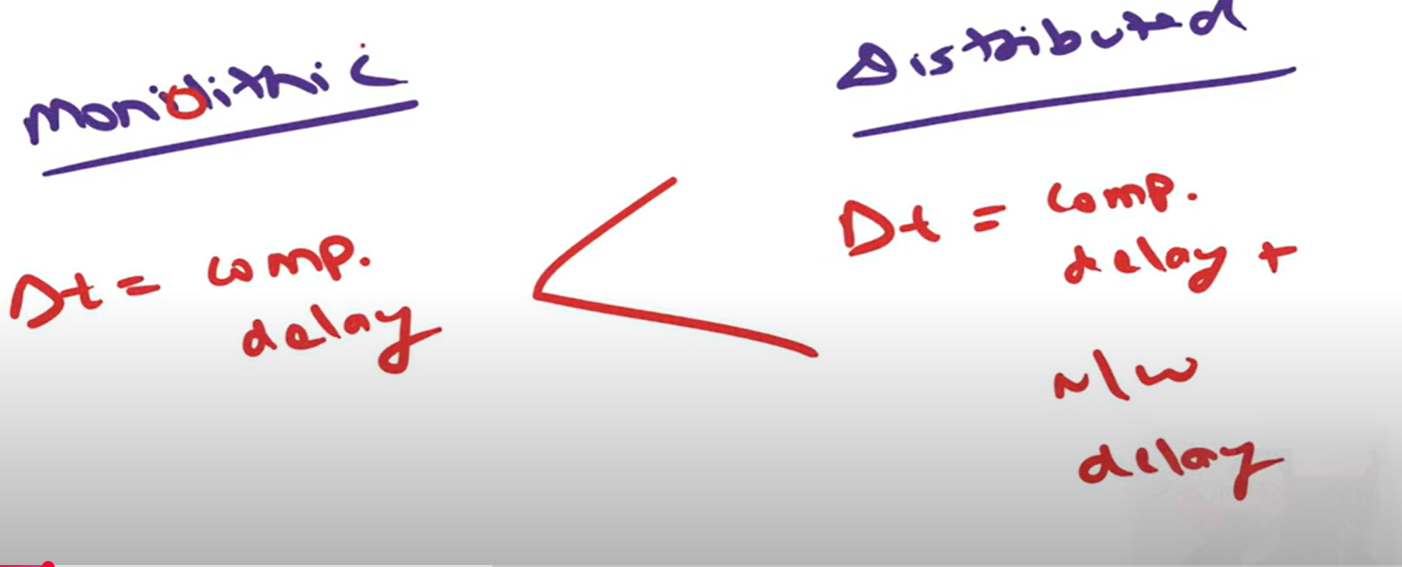 Monolithic
Δt = comp.
delay
<
Distributed
Δt = comp.
delay +
N/w
delay